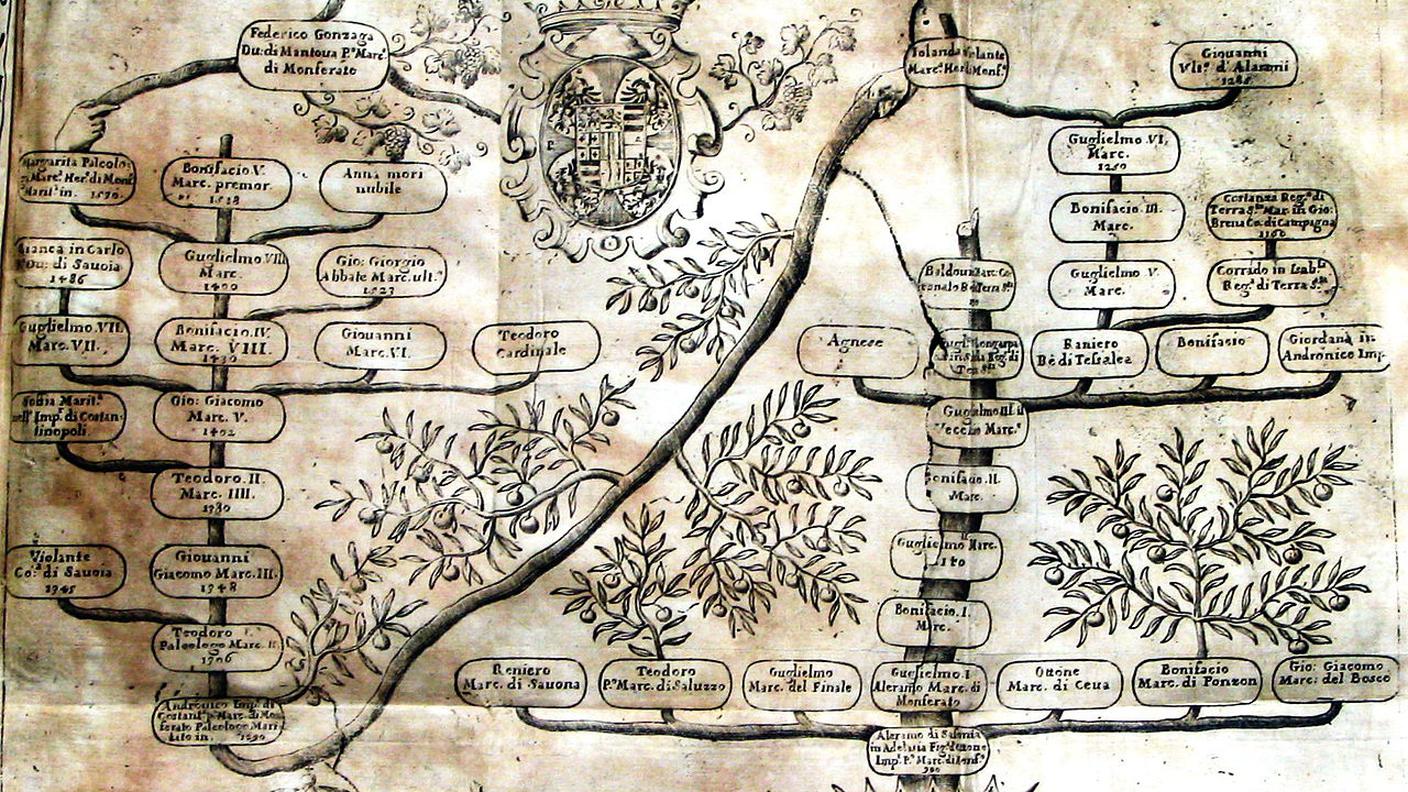 Federico Gonzaga
Du: di Mantoua P.º Marc.
di Monferato
Iolanda Violante
Marc. Her. di Monf.
Giouanni
Vlt.º d'Alarami
1285
Guglielmo VI.
Marc.
1250
Margarita Paleolo:
Marc. Her. di Monf.
Marit. in. 1570.
Bonifacio V.
Marc. premor.
1518
Anna mori
nubile
Bonifacio III.
Marc.
Costanza Reg.ª di
Terra S.ª Mar. in Gio:
Brena Co. di Campagna
1160
Bianca in Carlo
Du: di Sauoia
1486
Guglielmo VIII
Marc.
1400
Gio: Giorgio
Abbate Marc. ult.º
1523
Guglielmo V.
Marc.
Corrado in Isab.
Reg. di Terra S.
Guglielmo VII.
Marc. VII.
Bonifacio IV.
Marc. VIII.
1430
Giouanni
Marc. VI.
Teodoro
Cardinale
Agnese
Raniero
Rè di Tessalea
Bonifasio
Giordana in
Andronico Imp.
Soffia Marit.ª
nell' Imp. di Costan-
tinopoli.
Gio: Giacomo
Marc. V.
1402
Guglielmo III. il
Vecchio Marc.
Teodoro. II.
Marc. IIII.
1380
Bonifacio. II.
Marc.
Violante
Co.ª di Sauoia
1345
Giouanni
Giacomo Marc. III.
1348
Guglielmo Marc.
Bonifacio. I.
Marc.
Teodoro
Paleologo Marc. II.
1306
Reniero
Marc. di Sauona
Teodoro
P.º Marc. di Saluzzo
Guglielmo
Marc. del Finale
Guglielmo I
Aleramo Marc. di
Monferato
Ottone
Marc. di Ceua
Bonifacio
Marc. di Ponzon
Gio: Giacomo
Marc: del Bosco
Andronico Imp. di
Costant. Marc. di Mon-
ferato Paleologo Mari-
tato in. 1290
Aleramo di Sasonia
in Adelasia Fig. d'Ottone
Imp. P.º Marc. di Monf.